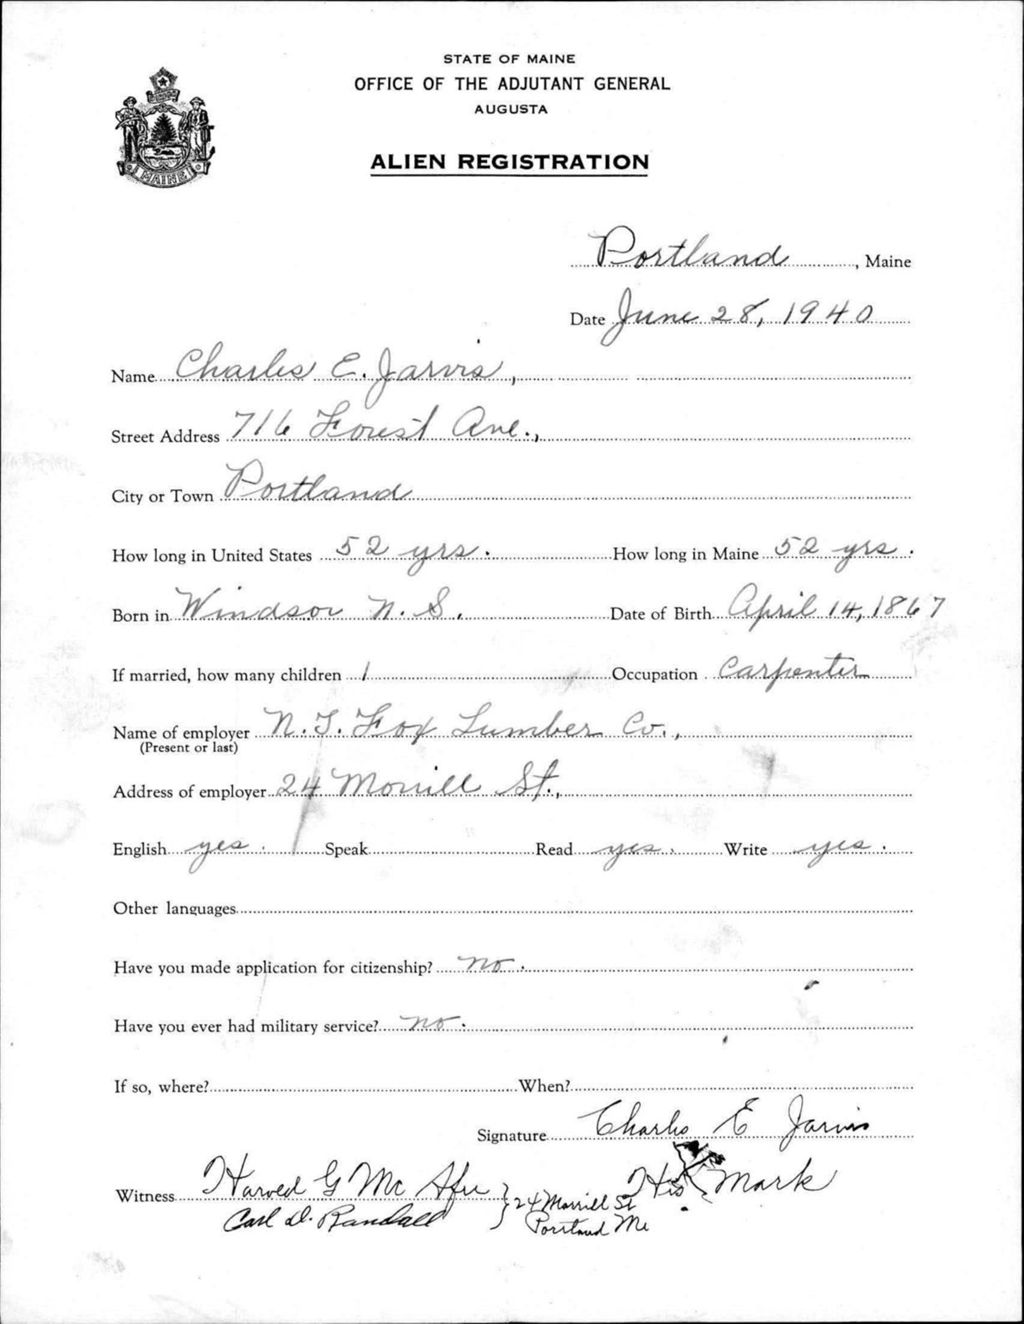 STATE OF MAINE
OFFICE OF THE ADJUTANT GENERAL
AUGUSTA
ALIEN REGISTRATION
MAINE
Portland, Maine
Date June 28, 1940
Name Charles E. Jarvis,
Street Address 716 Forest Ave.,
City or Town Portland
How long in United States 52 yrs. How long in Maine 52 yrs.
Born in Windsor N. S. Date of Birth April 14, 1867
If married, how many children 1 Occupation Carpenter
Name of employer N. T. Fox Lumber Co.,
(Present or last)
Address of employer 24 Morrill St.,
English yes. Speak Read yes. Write yes.
Other languages
Have you made application for citizenship? no.
Have you ever had military service? no.
If so, where? When?
Signature Charles E Jarvis
His X Mark
Witness Harold G McAfee } 24 Morrill St
Carl D. Randall Portland Me